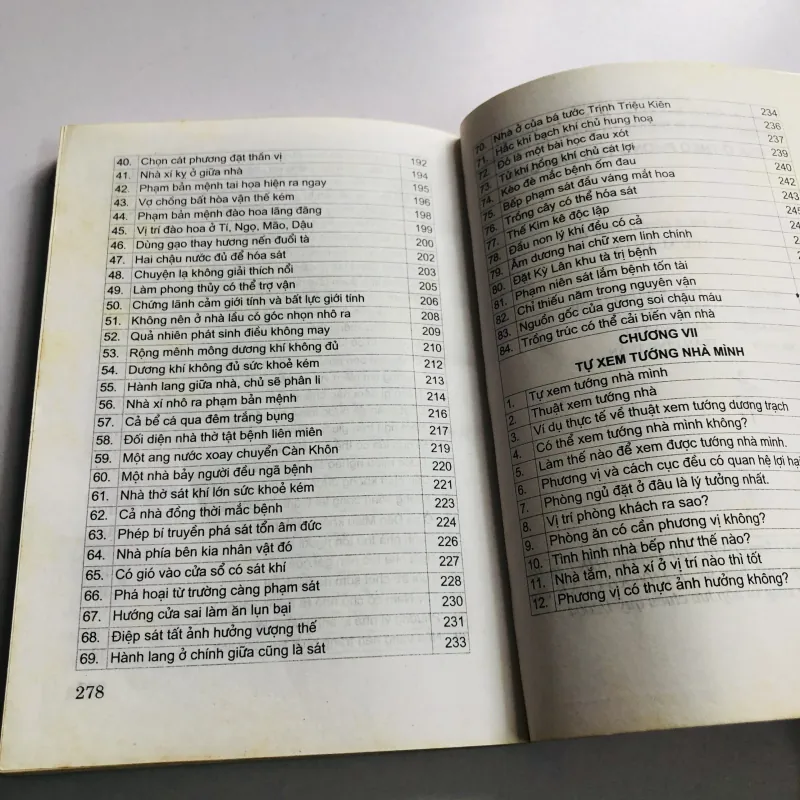 40. Chọn cát phương đạt thần vị 192
41. Nhà xí kỵ ở giữa nhà 194
42. Phạm bản mệnh tai họa hiện ra ngay 195
43. Vợ chồng bất hòa vận thế kém 196
44. Phạm bản mệnh đào hoa lãng đãng 198
45. Vị trí đào hoa ở Tí, Ngọ, Mão, Dậu 199
46. Dùng gạo thay hương nến đuổi tà 200
47. Hai chậu nước đủ để hóa sát 202
48. Chuyện lạ không giải thích nổi 203
49. Làm phong thủy có thể trợ vận 205
50. Chứng lãnh cảm giới tính và bất lực giới tính 206
51. Không nên ở nhà lầu có góc nhọn nhô ra 208
52. Quả nhiên phát sinh điều không may 209
53. Rộng mênh mông dương khí không đủ 210
54. Dương khí không đủ sức khoẻ kém 212
55. Hành lang giữa nhà, chủ sẽ phân li 213
56. Nhà xí nhô ra phạm bản mệnh 214
57. Cả bể cá qua đêm trắng bụng 216
58. Đối diện nhà thờ tật bệnh liên miên 217
59. Một ang nước xoay chuyển Càn Khôn 219
60. Một nhà bảy người đều ngã bệnh 220
61. Nhà thờ sát khí lớn sức khoẻ kém 221
62. Cả nhà đồng thời mắc bệnh 223
63. Phép bí truyền phá sát tổn âm đức 224
64. Nhà phía bên kia nhân vật đó 226
65. Có gió vào cửa sổ có sát khí 227
66. Phá hoại từ trường càng phạm sát 228
67. Hướng cửa sai làm ăn lụn bại 230
68. Điệp sát tất ảnh hưởng vượng thế 231
69. Hành lang ở chính giữa cũng là sát 233
278
70. Nhà ở của bá tước Trịnh Triệu Kiên 234
71. Hắc khí bạch khí chủ hung hoạ 236
72. Đó là một bài học đau xót 237
73. Tử khí hồng khí chủ cát lợi 239
74. Kèo đè mắc bệnh ốm đau 240
75. Bếp phạm sát đầu váng mắt hoa 242
76. Trồng cây có thể hóa sát 243
77. Thế Kim kê độc lập
78. Đấu non lý khí đều có cả
79. Âm dương hai chữ xem linh chinh
80. Đặt Kỳ Lân khu tà trị bệnh
81. Phạm niên sát lắm bệnh tốn tài
82. Chỉ thiếu năm trong nguyên vận
83. Nguồn gốc của gương soi chậu máu
84. Trồng trúc có thể cải biến vận nhà
CHƯƠNG VII
TỰ XEM TƯỚNG NHÀ MÌNH
1. Tự xem tướng nhà mình
2. Thuật xem tướng nhà
3. Ví dụ thực tế về thuật xem tướng dương trạch
4. Có thể xem tướng nhà mình không?
5. Làm thế nào để xem được tướng nhà mình.
6. Phương vị và cách cục đều có quan hệ lợi hại
7. Phòng ngủ đặt ở đâu là lý tưởng nhất.
8. Vị trí phòng khách ra sao?
9. Phòng ăn có cần phương vị không?
10. Tình hình nhà bếp như thế nào?
11. Nhà tắm, nhà xí ở vị trí nào thì tốt
12. Phương vị có thực ảnh hưởng không?